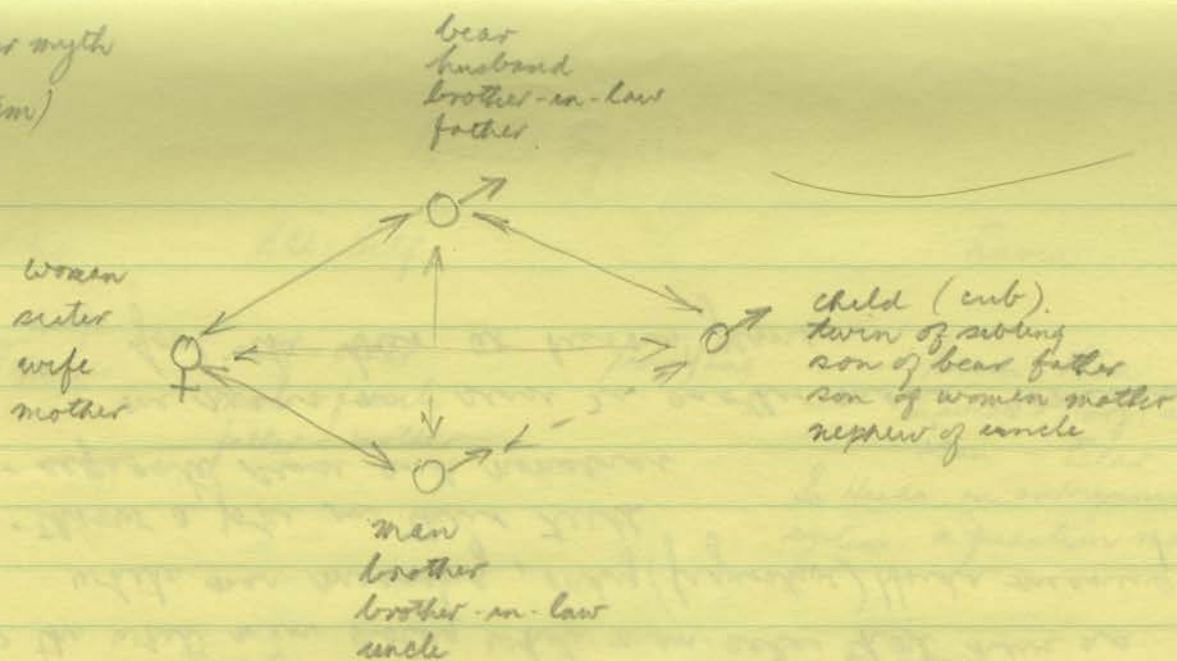 myth
bear
husband
brother-in-law
father
woman
sister
wife
mother
child (cub)
twin of sibling
son of bear father
son of women mother
nephew of uncle
man
brother
brother-in-law
uncle